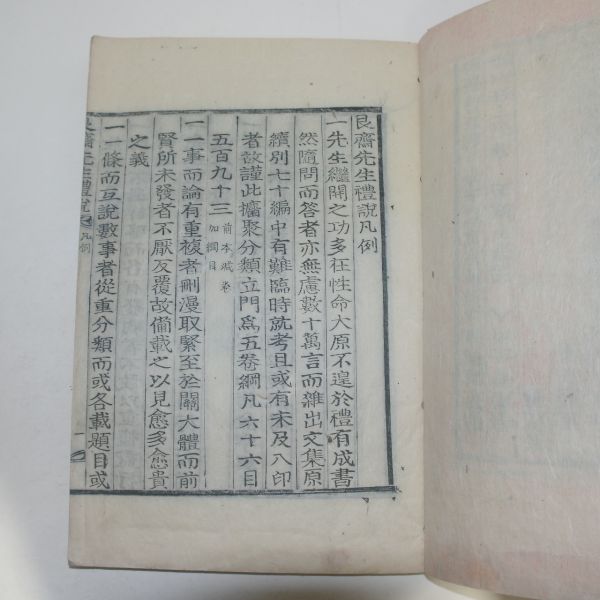 艮齋先生禮說凡例
一先生繼開之功多在性命大原不遑於禮有成書
然隨問而答者亦無慮數十萬言而雜出文集原
續別七十編中有難臨時就考且或有未及入印
者故謹此攟聚分類立門爲五卷綱凡六十六目
五百九十三前本减卷加綱目
一一事而論有重複者刪漫取緊至於關大體而前
賢所未發者不厭反覆故備載之以見愈多愈貴
之義
一一條而互說數事者從重分類而或各載題目或
艮齋先生禮說 凡例 一